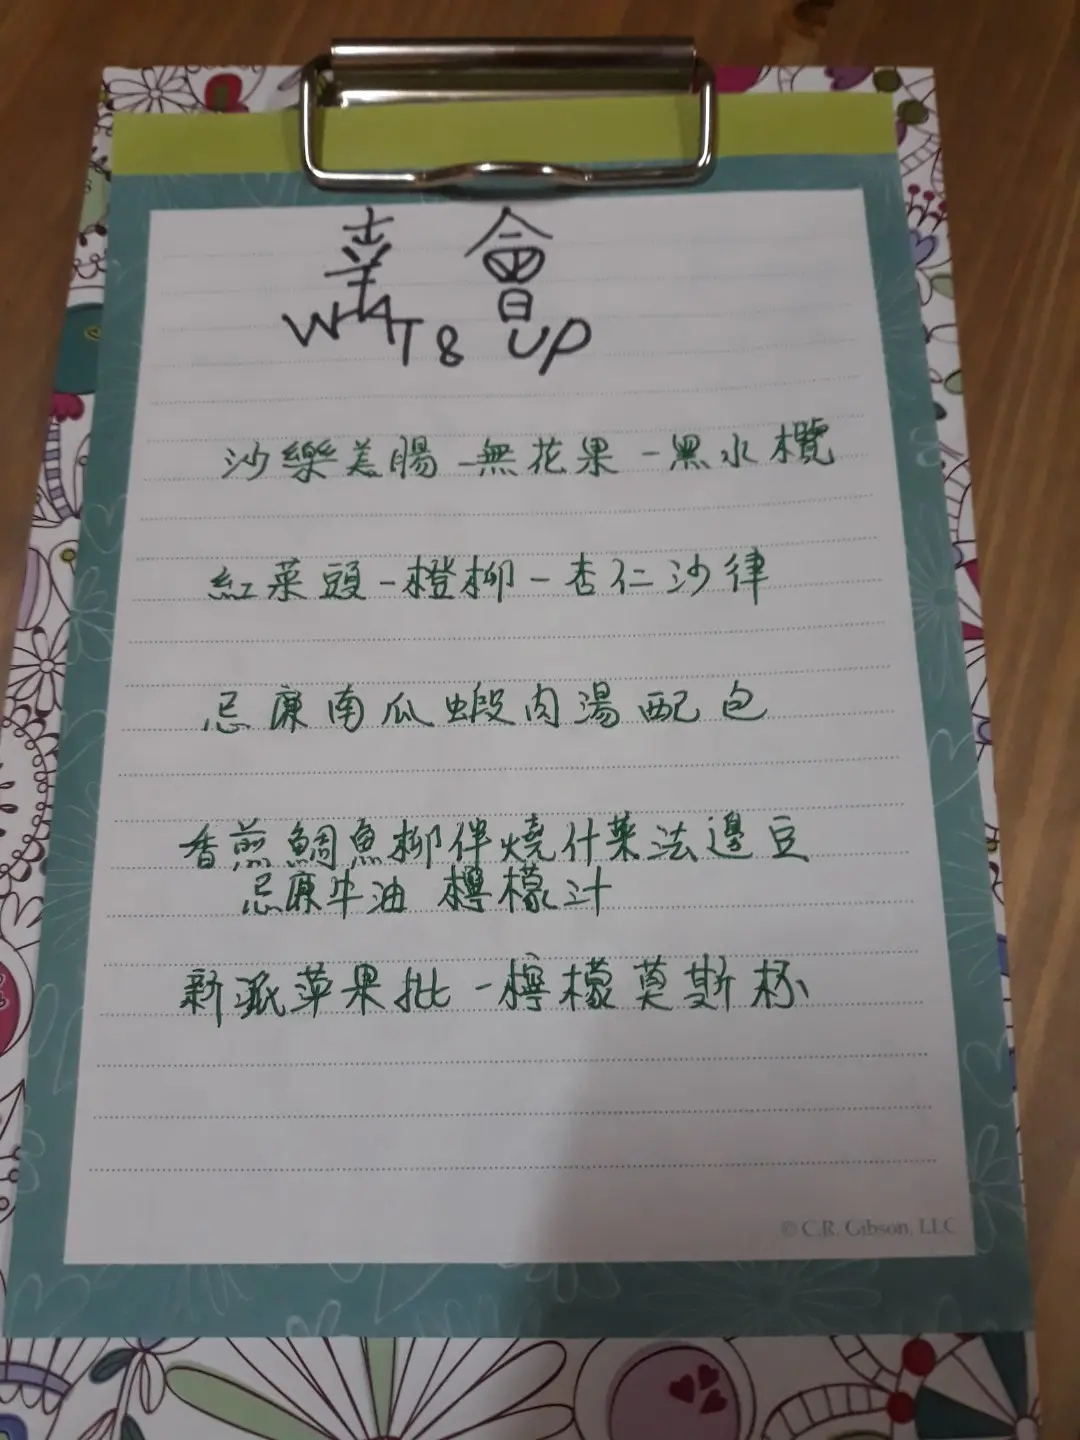 囍會
WHAT8 UP
沙樂美腸-無花果-黑水欖
紅菜頭-橙柳-杏仁沙律
忌廉南瓜蝦肉湯配包
香煎鯛魚柳伴燒什菜法邊豆
忌廉牛油 檸檬汁
新派苹果批-檸檬莫斯杯
© C.R. Gibson, LLC